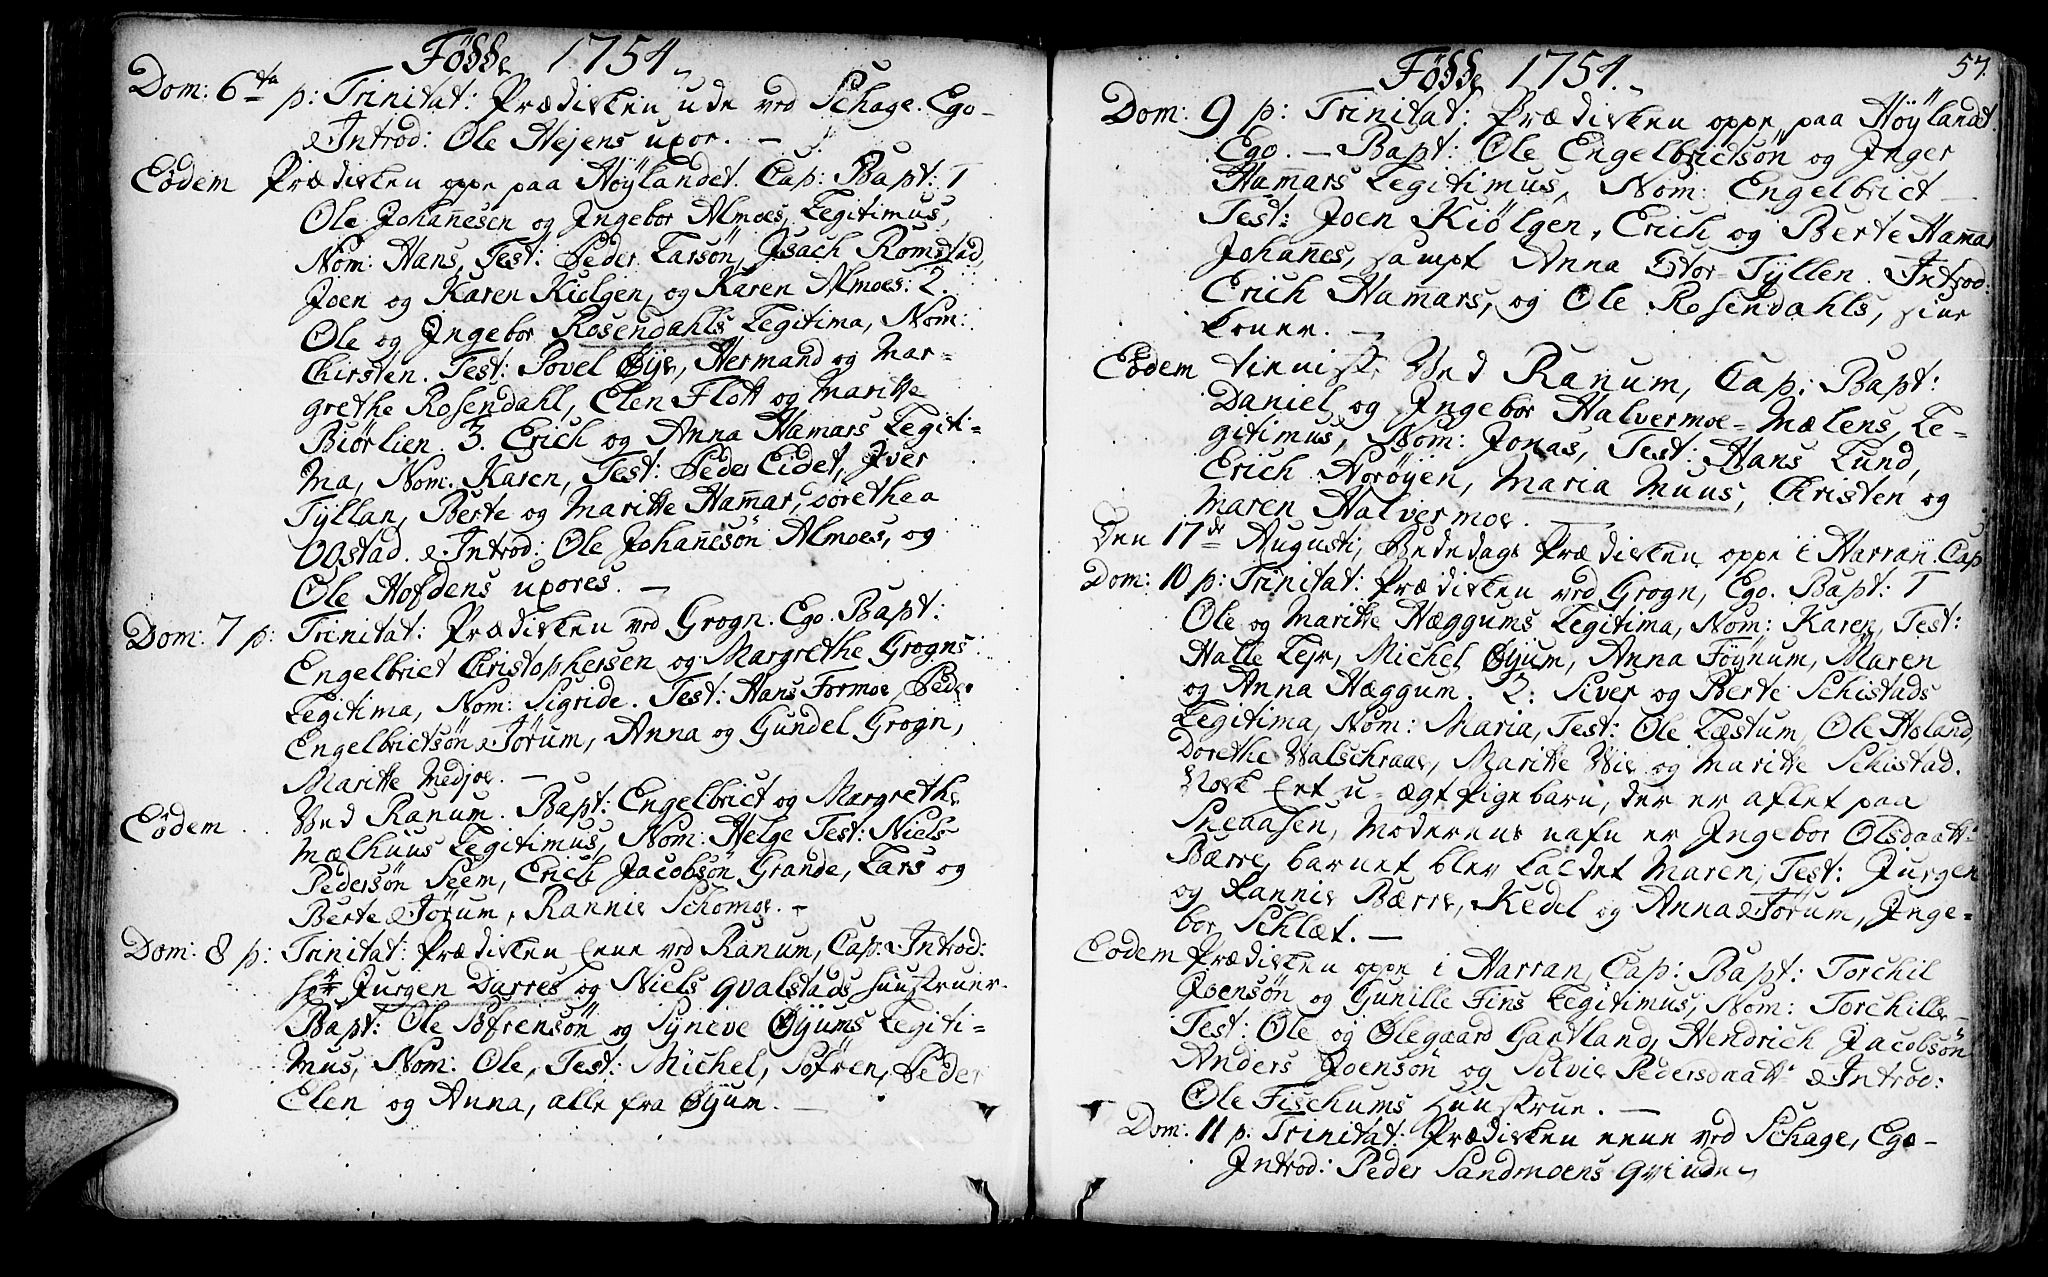 Födde 1754.
Dom: 6ta p: Trinitat: Prædicken ude ved Schage. Ego –
Introd: Ole Hejens uxor. –
Eodem Prædicken oppe paa Höylandet. Cap: Bapt: 1
Ole Johañesen og Ingebor Almoes, Legitimus,
Nom: Hans, Test: Peder Larsön, Isach Romstad,
Joen og Karen Kiölgen, og Karen Almoes: 2.
Ole og Ingebor Rosendahls Legitima, Nom:
Chirsten. Test: Povel Öye, Hermand og Mar-
grethe Rosendahl, Elen Flott og Maritte
Biörlien. 3. Erich og Anna Hamars Legiti-
ma, Nom. Karen, Test: Peder Eidet, Iver
Tyllan, Berte og Maritte Ham̄ar, Dorethea
Opstad. Introd: Ole Johañesön Almoes, og
Ole Hofdens uxores. –
Dom: 7 p: Trinitat: Prædicken ved Grogn. Ego. Bapt:
Engelbrict Christophersen og Margrethe Grogns
Legitima, Nom: Sigride. Test: Hans Formoe, Peder
Engelbrictsön Jörum, Anna og Gundel Grogn,
Maritte Medjoe. –
Eodem Ved Ranum. Bapt: Engelbrict og Margrethe
Mælhuus Legitimus, Nom: Helge Test: Niels
Pedersön Seem, Erich Jacobsön Grande, Lars og
Berte Jörum, Rannie Schomoe. –
Dom: 8 p: Trinitat: Prædicken eene ved Ranum, Cap: Introd:
Hr Jurgen Darres og Niels Qvalstads huustruer.
Bapt: Ole Söfrensön og Syneve Öyums Legiti-
mus, Nom: Ole, Test: Michel, Söfren, Peder
Elen og Anna, alle fra Öyum. –
Födde 1754. 57.
Dom: 9 p: Trinitat: Prædicken oppe paa Höylandet.
Ego. – Bapt: Ole Engelbrictsön og Inger
Ham̄ars Legitimus, Nom: Engelbrict –
Test: Joen Kiölgen, Erich og Berte Ham̄ar
Johañes, sampt Anna Stor-Tyllen. Introd:
Erich Ham̄ars, og Ole Rosendahls, sine
koner. –
Eodem Ved Ranum, Cap: Bapt:
Daniel og Ingebor Halvermoe-Mælens, Le-
gitimus, Nom: Jonas, Test: Hans Lund,
Erich Noröyen, Maria Muus, Christen og
Maren Halvermoe. –
Den 17de Augusti, Bededags Prædicken oppe i Harran. Cap
Dom: 10 p: Trinitat: Prædicken ved Grogn, Ego. Bapt: 1
Ole og Maritte Hæggums Legitima, Nom: Karen, Test:
Halle Leje, Michel Öyum, Anna Föynum, Maren
og Anna Hæggum. 2: Siver og Berte Schistads
Legitima, Nom: Maria, Test: Ole Læstum, Ole Holand,
Dorethe Valschraae, Maritte Wie og Maritte Schistad.
Nock eet u-ægt pigebarn, der er aflet paa
Sneaasen, Moderens nafn er Ingebor Olsdaatt:
Bærre, barnet blev kaldet Maren, Test: Jurgen
og Rannie Bærre, Kedel og Anna Jörum, Inge-
bor Schlæt. –
Eodem Prædicken oppe i Harran, Cap: Bapt: Torchil
Joensön og Gunille Fins Legitimus, Nom: Torchille –
Test: Ole og Ölegaard Gartland, Hendrich Jacobsön
Anders Joensön og Solvie Pedersdaatt: Introd:
Ole Fischums huustrue. –
Dom: 11 p: Trinitat: Prædicken eene ved Schage, Ego –
Introd: Peder Sandmoens qvinde.